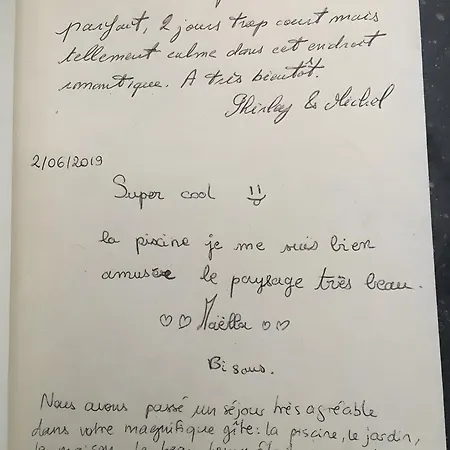 parfait, 2 jours trop court mais
tellement calme dans cet endroit
romantique. A très bientôt.
Shirley & Michel
2/06/2019
Super cool
la piscine je me suis bien
amusée le paysage très beau.
♡♡ Maëlla ♡♡
Bisous.
Nous avons passé un séjour très agréable
dans votre magnifique gîte: la piscine, le jardin,